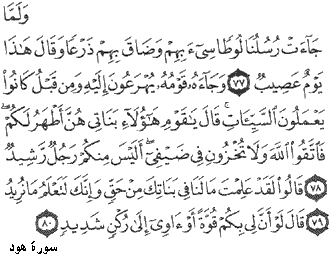 وَلَمَّا
جَآءَتْ رُسُلُنَا لُوطًا سِىٓءَ بِهِمْ وَضَاقَ بِهِمْ ذَرْعًا وَقَالَ هَٰذَا
يَوْمٌ عَصِيبٌ ﴿٧٧﴾ وَجَآءَهُۥ قَوْمُهُۥ يُهْرَعُونَ إِلَيْهِ وَمِن قَبْلُ كَانُوا۟
يَعْمَلُونَ ٱلسَّيِّـَٔاتِ ۚ قَالَ يَٰقَوْمِ هَٰٓؤُلَآءِ بَنَاتِى هُنَّ أَطْهَرُ لَكُمْ ۖ
فَٱتَّقُوا۟ ٱللَّهَ وَلَا تُخْزُونِ فِى ضَيْفِىٓ ۖ أَلَيْسَ مِنكُمْ رَجُلٌ رَّشِيدٌ
﴿٧٨﴾ قَالُوا۟ لَقَدْ عَلِمْتَ مَا لَنَا فِى بَنَاتِكَ مِنْ حَقٍّ وَإِنَّكَ لَتَعْلَمُ مَا نُرِيدُ
﴿٧٩﴾ قَالَ لَوْ أَنَّ لِى بِكُمْ قُوَّةً أَوْ ءَاوِىٓ إِلَىٰ رُكْنٍ شَدِيدٍ ﴿٨٠﴾
سورة هود